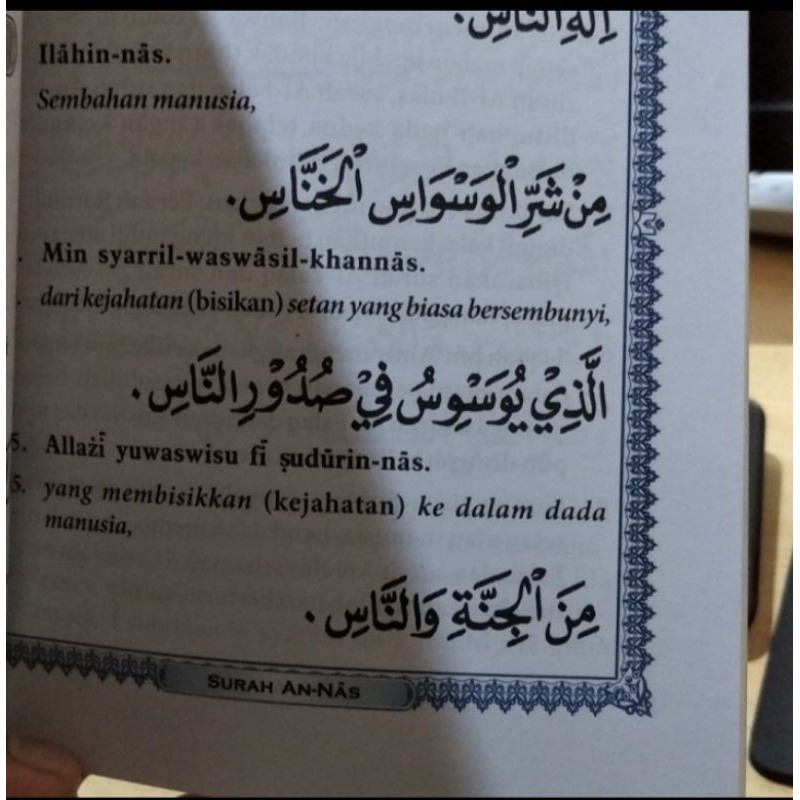 إِلٰهِ النَّاسِ.
Ilāhin-nās.
Sembahan manusia,
مِنْ شَرِّ الْوَسْوَاسِ الْخَنَّاسِ.
. Min syarril-waswāsil-khannās.
. dari kejahatan (bisikan) setan yang biasa bersembunyi,
الَّذِيْ يُوَسْوِسُ فِيْ صُدُوْرِ النَّاسِ.
5. Allażī yuwaswisu fī ṣudūrin-nās.
5. yang membisikkan (kejahatan) ke dalam dada
manusia,
مِنَ الْجِنَّةِ وَالنَّاسِ.
SURAH AN-NĀS